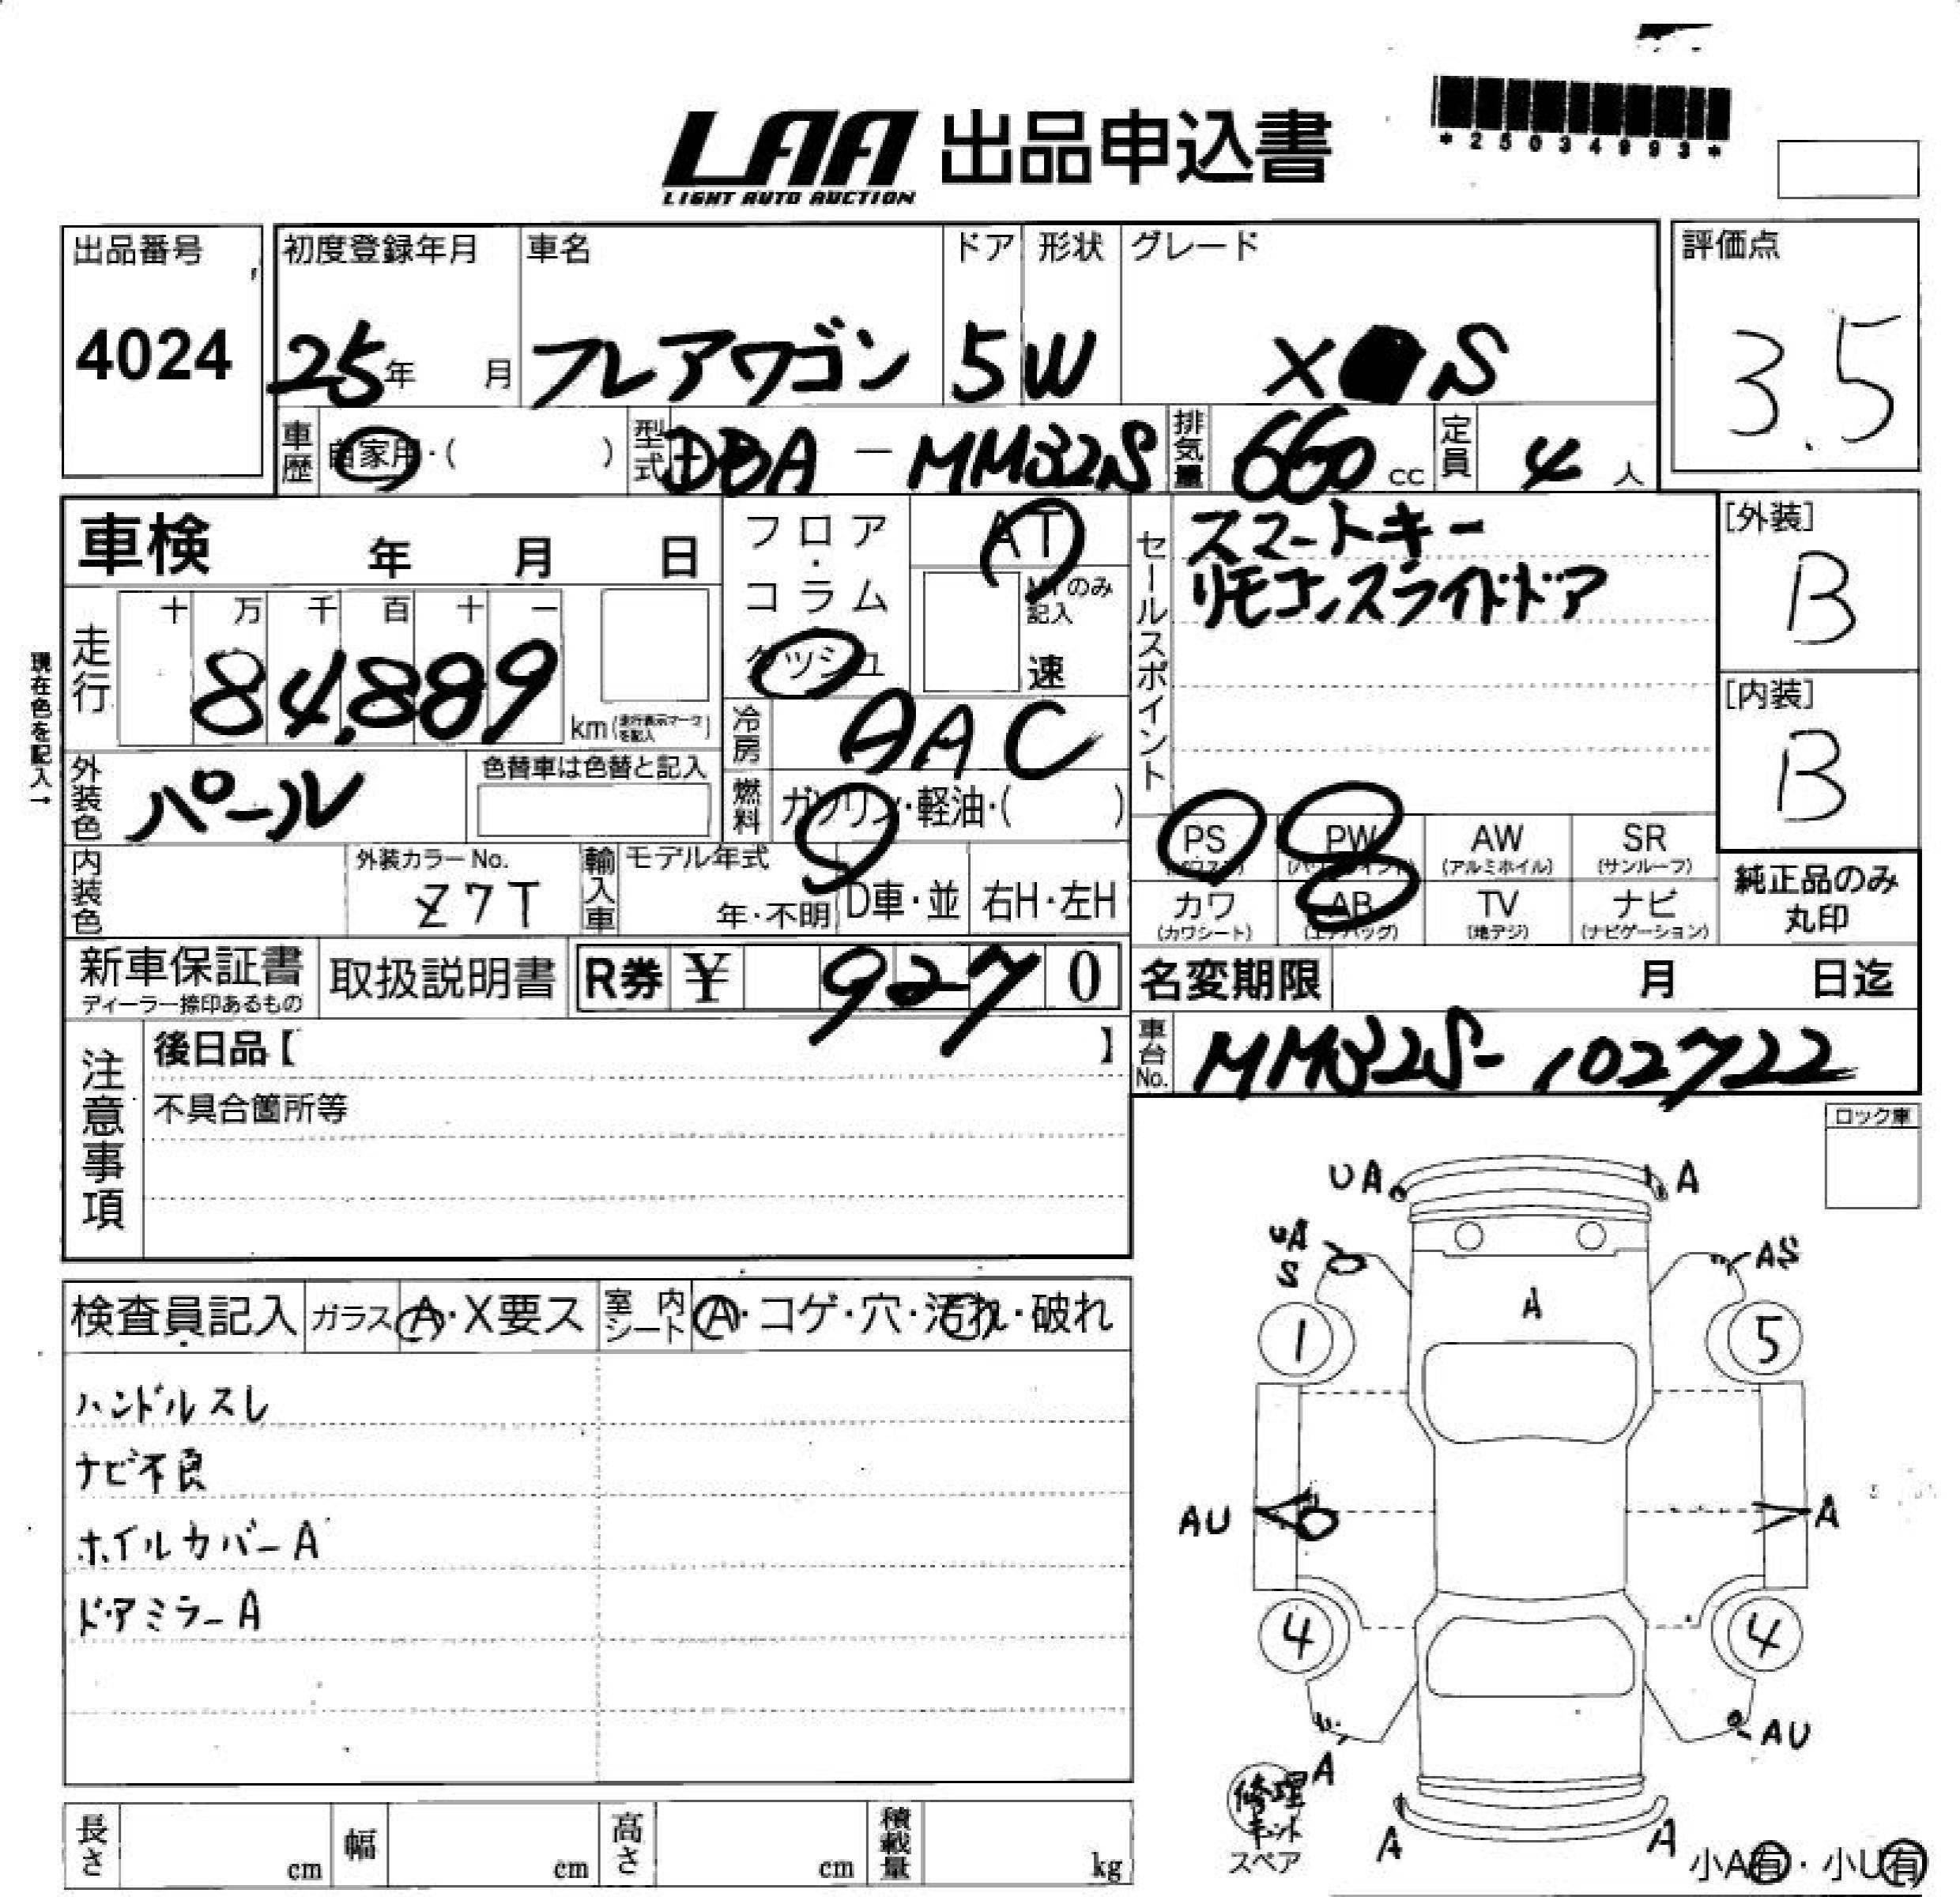 LAA 出品申込書
LIGHT AUTO AUCTION
*25034993*
出品番号
4024
初度登録年月
25年 月
車名
フレアワゴン
ドア
5
形状
W
グレード
X S
評価点
3.5
車歴 自家用・( )
型式 DBA-MM32S
排気量 660 cc
定員 4 人
車検 年 月 日
フロア・コラム
ダッシュ
AT
MTのみ記入
速
セールスポイント
スマートキー
リモコンスライドドア
[外装]
B
[内装]
B
現在色を記入→
走行
十 万 千 百 十 一
84,889
km (走行表示マークを記入)
冷房 AAC
外装色 パール
色替車は色替と記入
燃料 ガソリン・軽油・( )
PS (パワステ) PW (パワーウインド) AW (アルミホイル) SR (サンルーフ)
カワ (カワシート) AB (エアバッグ) TV (地デジ) ナビ (ナビゲーション)
純正品のみ丸印
内装色
外装カラーNo.
Z7T
輸入車 モデル年式
年・不明 D車・並 右H・左H
新車保証書
ディーラー捺印あるもの
取扱説明書
R券 ¥ 9270
名変期限 月 日迄
車台No. MM32S-102722
注意事項
後日品【 】
不具合箇所等
ロック車
検査員記入 ガラス A・X要ス 室内シート A・コゲ・穴・汚れ・破れ
ハンドルスレ
ナビ不良
ホイルカバーA
ドアミラーA
UA A
UA S AS
A
1 5
AU A
4 4
A AU
修理キット
スペア
A A
小A有・小U有
長さ cm 幅 cm 高さ cm 積載量 kg